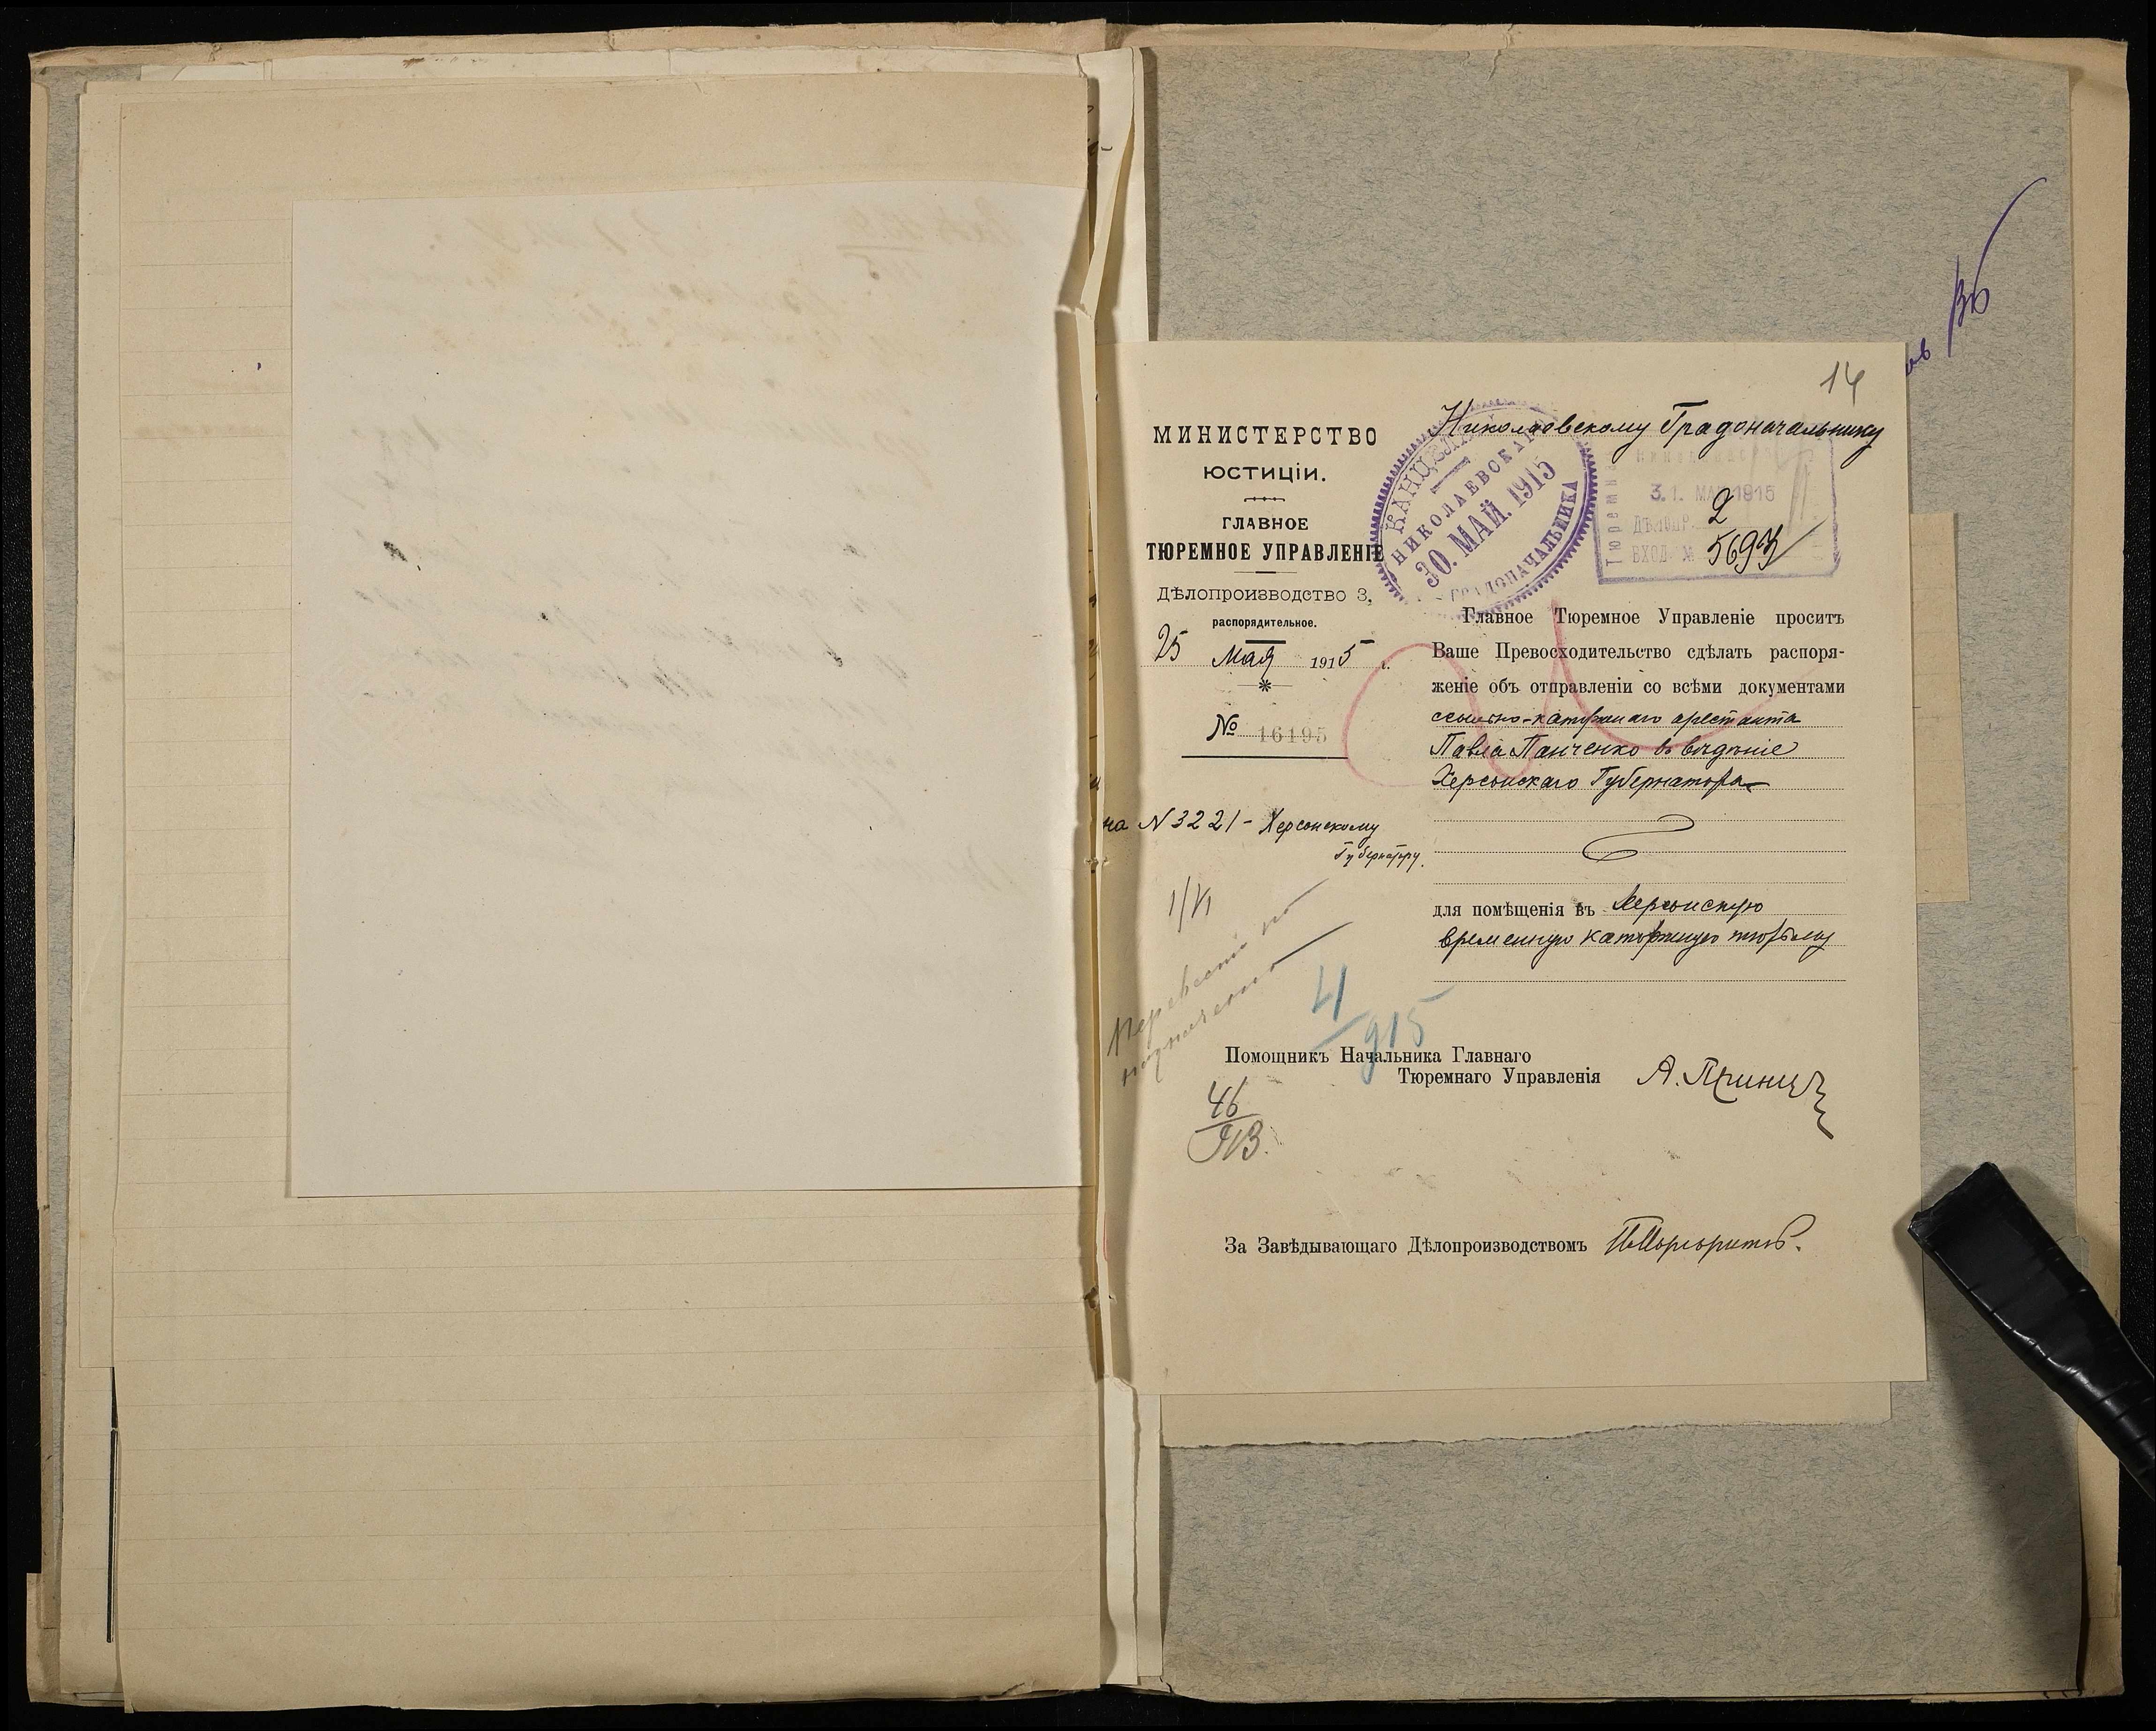 14
Николаевскому Градоначальнику
МИНИСТЕРСТВО
ЮСТИЦІИ.
ГЛАВНОЕ
ТЮРЕМНОЕ УПРАВЛЕНІЕ
Дѣлопроизводство 3,
распорядительное.
25 Мая 1915 г.
№ 16195
КАНЦЕЛЯРІЯ
НИКОЛАЕВСКАГО
30. МАЙ. 1915
ГРАДОНАЧАЛЬНИКА
31. МАЙ 1915
ДѢЛОПР. 2
ВХОД. № 5693
Главное Тюремное Управленіе проситъ
Ваше Превосходительство сдѣлать распоря-
женіе объ отправленіи со всѣми документами
ссыльно-каторжнаго арестанта
Павла Панченко въ вѣдѣніе
Херсонскаго Губернатора
для помѣщенія въ Херсонскую
временную каторжную тюрьму
на N 3221 - Херсонскому
Губернатору.
1/VI
4/915
Помощникъ Начальника Главнаго
Тюремнаго Управленія
46
913.
За Завѣдывающаго Дѣлопроизводствомъ